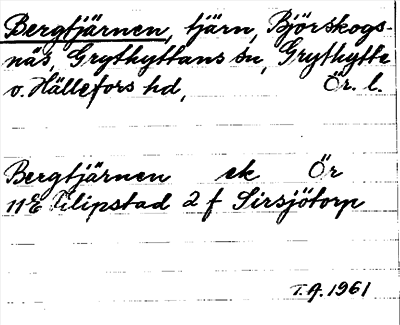 Bergtjärnen, tjärn, Björskogs-
näs, Grythyttans sn, Grythytte
o. Hällefors hd, Ör. l.
Bergtjärnen ek Ör
11E Filipstad 2 f Sirsjötorp
T.A. 1961